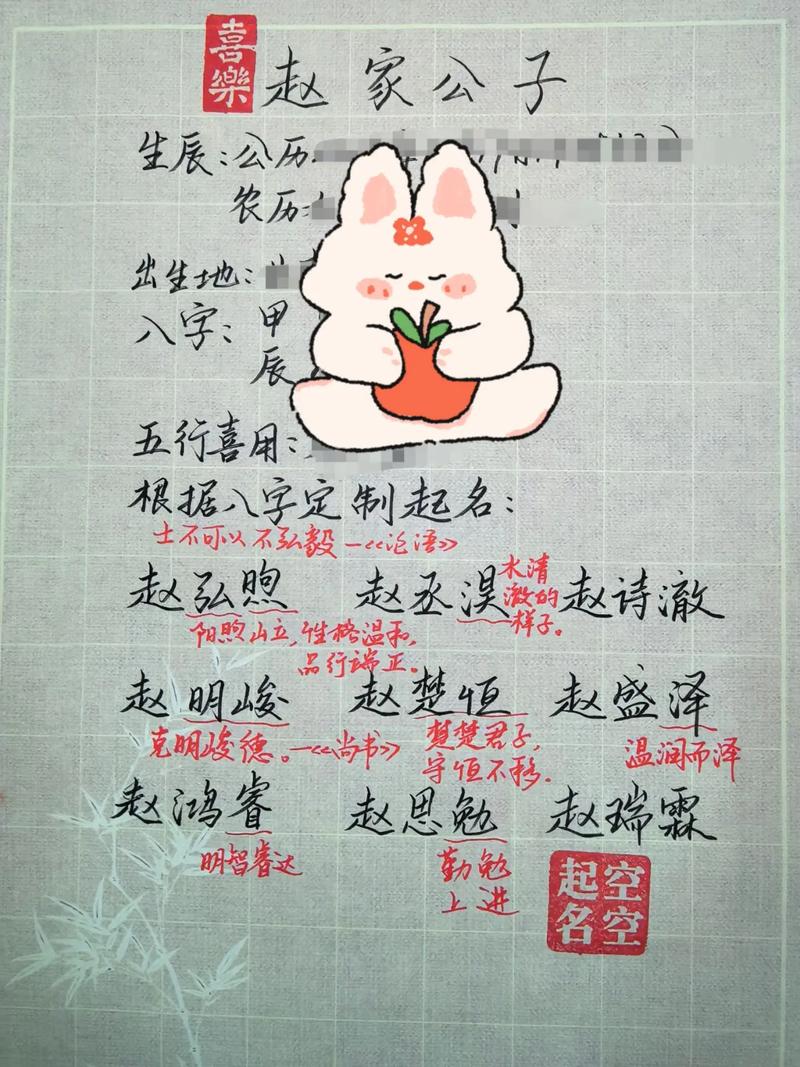 喜樂
赵家公子
生辰：公历
农历
出生地：
八字：甲
辰
五行喜用：
根据八字定制起名：
士不可以不弘毅—《论语》
赵弘煦 赵丞淏 赵诗澈
水清澈的样子。
阳煦山立，性格温和，
品行端正。
赵明峻 赵楚恒 赵盛泽
克明峻德。—《尚书》
楚楚君子，
守恒不移.
温润而泽
赵鸿睿 赵思勉 赵瑞霖
明智睿达
勤勉
上进
空空起名